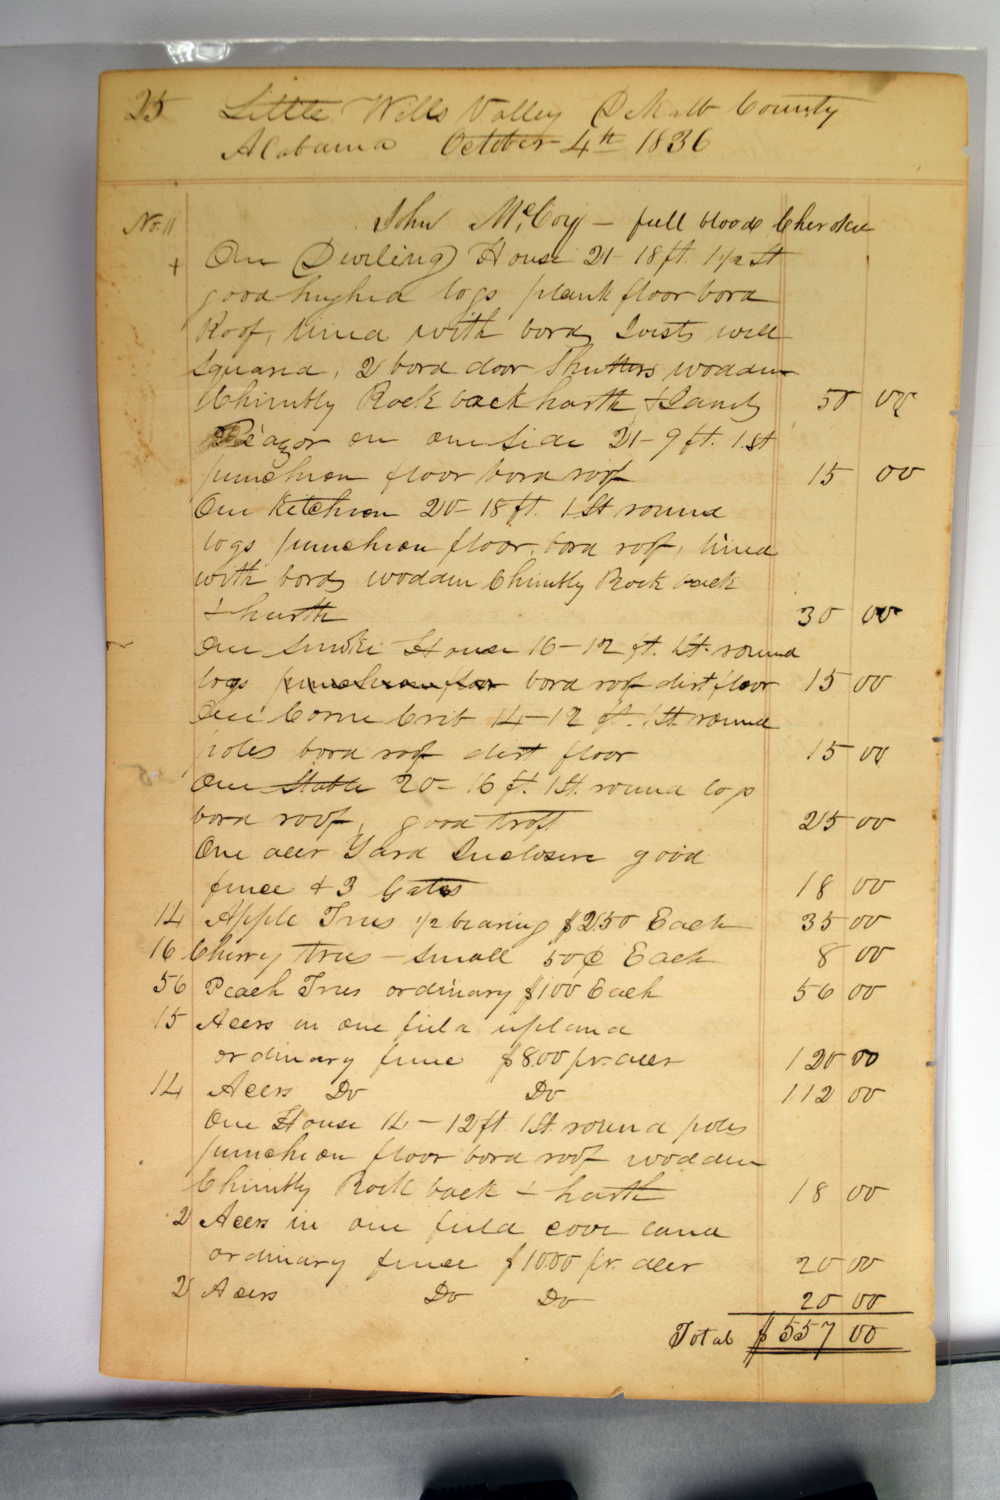 25 Little Wills Valley DeKalb County
Alabama October 4th 1836
No. 11 John McCoy – full blood Cherokee
+ One Dwelling House 21–18 ft. 1 1/2 St
good hughed logs plank floor bord
Roof, lined with bords Joists well
squared, 2 bord door Shutters wodden
Chimbly Rock back harth & Jams 50 00
Peazor on one side 21–9 ft. 1 St
puncheon floor bord roof 15 00
One Kitcheon 20–18 ft. 1 St round
logs puncheon floor, bord roof, lined
with bords wodden Chimbly Rock back
& harth 30 00
One Smoke House 16–12 ft. 1 St. round
logs puncheon floor bord roof dirt floor 15 00
One Corne Crib 14–12 ft. 1 St round
poles bord roof dirt floor 15 00
One Stable 20–16 ft. 1 St. round logs
bord roof, good troft 25 00
One acer Yard Inclosure good
fence & 3 Gates 18 00
14 Apple Trees 1/2 bearing $2.50 Each 35 00
16 Cherry trees – small 50¢ Each 8 00
56 Peach Trees ordinary $1.00 Each 56 00
15 Acers in one field upland
ordinary fence $8.00 pr. acer 120 00
14 Acers Do Do 112 00
One House 14–12 ft 1 St. round poles
puncheon floor bord roof wodden
Chimbly Rock back & harth 18 00
2 Acers in one field cove land
ordinary fence $10.00 pr. acer 20 00
2 Acers Do Do 20 00
Total $557 00